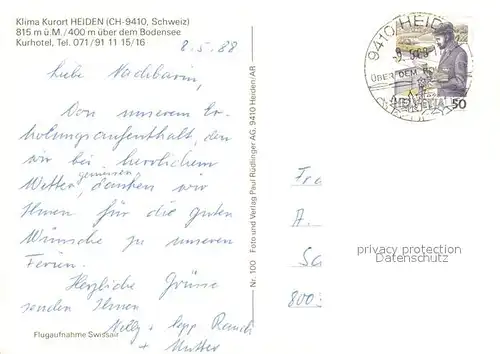 Klima Kurort HEIDEN (CH-9410, Schweiz)
815 m ü.M./400 m über dem Bodensee
Kurhotel, Tel. 071/91 11 15/16
8.5.88
Liebe Nachbarin,
Von unserem Er-
holungsaufenthalt, den
wir bei herrlichem
Wetter geniessen, danken wir
Ihnen für die guten
Wünsche zu unseren
Ferien.
Herzliche Grüsse
senden Ihnen
Nelly + Sepp
+ Mutter
Flugaufnahme Swissair
Nr. 100 Foto und Verlag Paul Rüdlinger AG, 9410 Heiden/AR
9410 HEIDEN
ÜBER DEM BO
HELVETIA 50
Fra
A.
Sc
800
privacy protection
Datenschutz